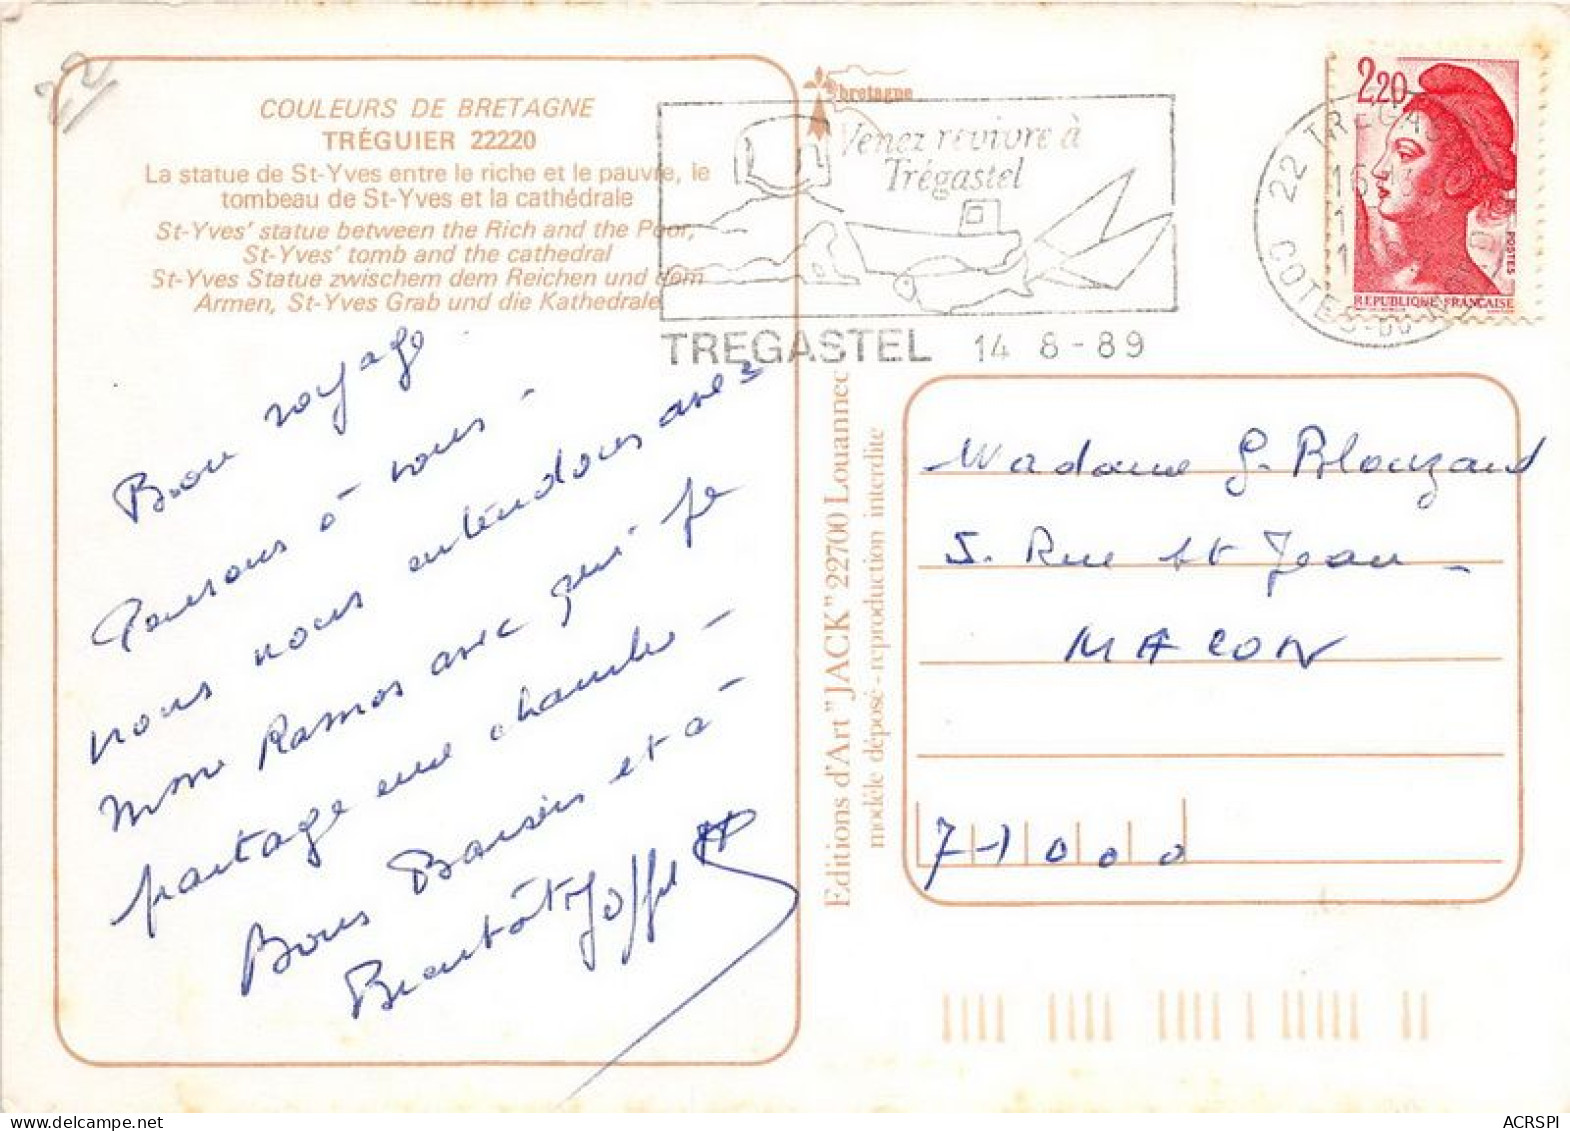 22
COULEURS DE BRETAGNE
TRÉGUIER 22220
La statue de St-Yves entre le riche et le pauvre, le
tombeau de St-Yves et la cathédrale
St-Yves' statue between the Rich and the Poor,
St-Yves' tomb and the cathedral
St-Yves Statue zwischem dem Reichen und dem
Armen, St-Yves Grab und die Kathedrale
Bon voyage
Pensons à vous -
nous nous entendons avec
Mme Ramos avec qui je
partage une chambre -
Bons Baisers et à
Bientôt
bretagne
Venez revivre à
Trégastel
TREGASTEL 14 8-89
Editions d'Art "JACK" 22700 Louannec
modèle déposé - reproduction interdite
2,20
POSTES
REPUBLIQUE FRANÇAISE
22 TREGAS
COTES-DU-N
Madame G. Blouzard
5. Rue St Jean -
MACON
71000
ACRSPI